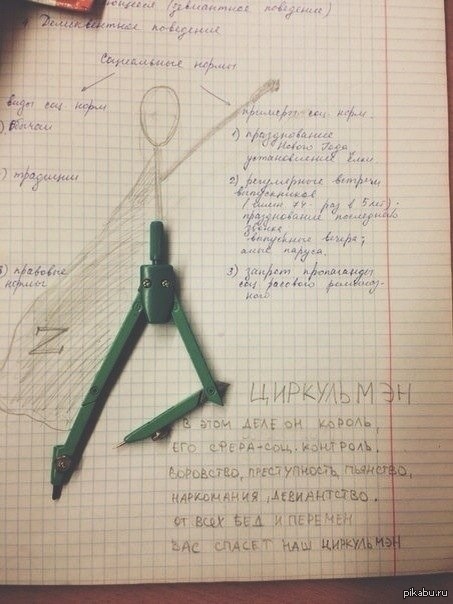 ующиеся (девиантное поведение)
Делинквентное поведение
Социальные нормы
виды соц норм
примеры соц. норм
1) Обычаи
1) празднование
Нового Года
установление ёлки
) традиции
2) регулярные встречи
выпускников
раз в 5 лет);
празднование последнего
звонка
выпускные вечера;
алые паруса.
3) правовые
нормы
3) запрет пропаганды
соц расового религиоз-
ного
N
ЦИРКУЛЬМЭН
В ЭТОМ ДЕЛЕ ОН КОРОЛЬ,
ЕГО СФЕРА-СОЦ.КОНТРОЛЬ.
ВОРОВСТВО, ПРЕСТУПНОСТЬ, ПЬЯНСТВО,
НАРКОМАНИЯ, ДЕВИАНТСТВО.
ОТ ВСЕХ БЕД И ПЕРЕМЕН
ВАС СПАСЕТ НАШ ЦИРКУЛЬМЭН
pikabu.ru